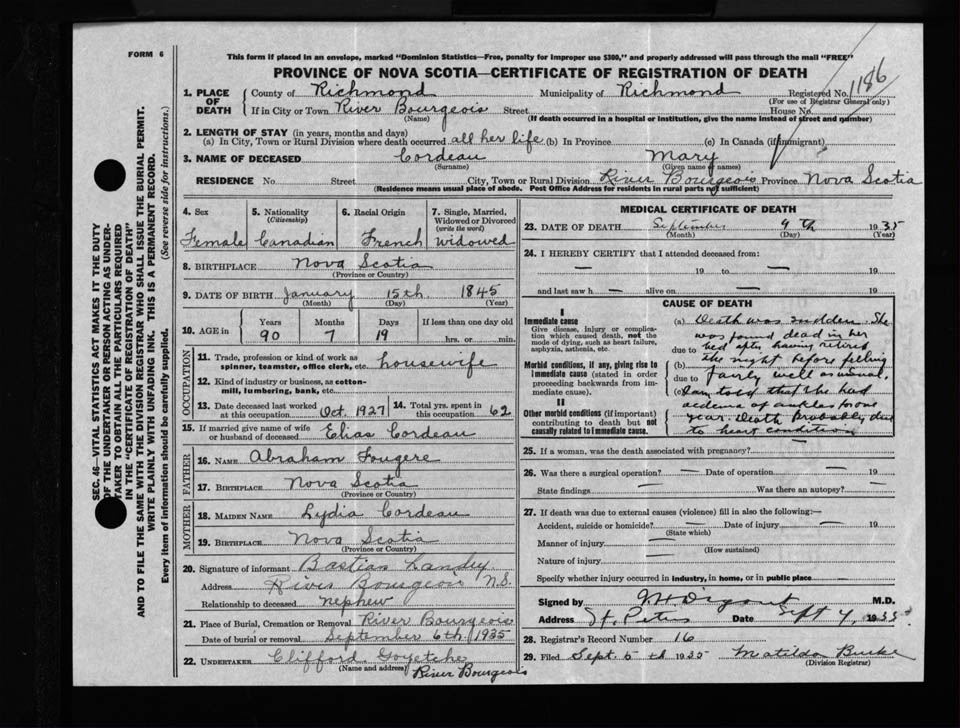 FORM 6
This form if placed in an envelope, marked "Dominion Statistics—Free, penalty for improper use $300," and properly addressed will pass through the mail "FREE"
PROVINCE OF NOVA SCOTIA—CERTIFICATE OF REGISTRATION OF DEATH
1186
1. PLACE OF DEATH
County of Richmond Municipality of Richmond Registered No.
(For use of Registrar General only)
If in City or Town River Bourgeois Street House No.
(Name) (If death occurred in a hospital or institution, give the name instead of street and number)
2. LENGTH OF STAY (in years, months and days)
(a) In City, Town or Rural Division where death occurred all her life (b) In Province (c) In Canada (if immigrant)
3. NAME OF DECEASED Cordeau Mary
(Surname) (Given name or names)
RESIDENCE No. Street City, Town or Rural Division River Bourgeois Province Nova Scotia
(Residence means usual place of abode. Post Office Address for residents in rural parts not sufficient)
SEC. 46—VITAL STATISTICS ACT MAKES IT THE DUTY
OF THE UNDERTAKER OR PERSON ACTING AS UNDERTAKER TO OBTAIN ALL THE PARTICULARS REQUIRED
IN THE "CERTIFICATE OF REGISTRATION OF DEATH"
AND TO FILE THE SAME WITH THE DIVISION REGISTRAR WHO SHALL ISSUE THE BURIAL PERMIT.
WRITE PLAINLY WITH UNFADING INK. THIS IS A PERMANENT RECORD.
Every item of information should be carefully supplied. (See reverse side for instructions.)
4. Sex
Female
5. Nationality
(Citizenship)
Canadian
6. Racial Origin
French
7. Single, Married, Widowed or Divorced
(write the word)
widowed
8. BIRTHPLACE Nova Scotia
(Province or Country)
9. DATE OF BIRTH January 15th 1845
(Month) (Day) (Year)
10. AGE in
Years Months Days If less than one day old
90 7 19 hrs. or min.
OCCUPATION
11. Trade, profession or kind of work as
spinner, teamster, office clerk, etc. housewife
12. Kind of industry or business, as cotton-
mill, lumbering, bank, etc.
13. Date deceased last worked
at this occupation Oct. 1927
14. Total yrs. spent in
this occupation 62
15. If married give name of wife
or husband of deceased Elias Cordeau
FATHER
16. NAME Abraham Fougere
17. BIRTHPLACE Nova Scotia
(Province or Country)
MOTHER
18. MAIDEN NAME Lydia Cordeau
19. BIRTHPLACE Nova Scotia
(Province or Country)
20. Signature of informant Bastian Landry
Address River Bourgeois N.S.
Relationship to deceased nephew
21. Place of Burial, Cremation or Removal River Bourgeois
Date of burial or removal September 6th, 1935
22. UNDERTAKER Clifford Goyetche
(Name and address) River Bourgeois
MEDICAL CERTIFICATE OF DEATH
23. DATE OF DEATH September 4th 1935
(Month) (Day) (Year)
24. I HEREBY CERTIFY that I attended deceased from:
— 19 to — 19
and last saw h — alive on — 19
CAUSE OF DEATH
I
Immediate cause
Give disease, injury or complication which caused death, not the mode of dying, such as heart failure, asphyxia, asthenia, etc.
Morbid conditions, if any, giving rise to immediate cause (stated in order proceeding backwards from immediate cause).
II
Other morbid conditions (if important) contributing to death but not causally related to immediate cause.
(a) Death was sudden. She
was found dead in her
due to bed after having retired
(b) the night before feeling
due to fairly well as usual.
(c) I am told that she had
oedema of ankles for one
year. Death probably due
to heart condition
25. If a woman, was the death associated with pregnancy?
26. Was there a surgical operation? — Date of operation — 19
State findings — Was there an autopsy? —
27. If death was due to external causes (violence) fill in also the following:—
Accident, suicide or homicide? — Date of injury — 19
(State which)
Manner of injury —
(How sustained)
Nature of injury —
Specify whether injury occurred in industry, in home, or in public place —
Signed by M.D.
Address St. Peters Date Sept 4, 1935
28. Registrar's Record Number 16
29. Filed Sept. 5th 1935 Matilda Burke
(Division Registrar)